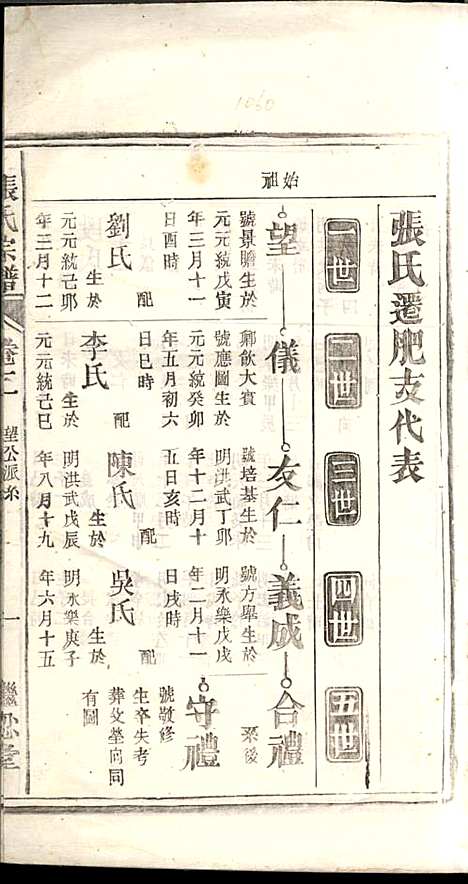 1060
張氏遷肥支代表
一世 二世 三世 四世 五世
始祖
望 儀 友仁 義成 合禮
守禮
號景瞻生於
元元統戊寅
年三月十一
日酉時
配
劉氏
生於
元元統己卯
年三月十二
鄉飲大賓
號應圖生於
元元統癸卯
年五月初六
日巳時
配
李氏
生於
元元統己巳
號培基生於
明洪武丁卯
年十二月十
五日亥時
配
陳氏
生於
明洪武戊辰
年八月十九
號方舉生於
明永樂戊戌
年二月十一
日戌時
配
吳氏
生於
明永樂庚子
年六月十五
號敬修
生卒失考
葬父塋向同
有圖
張氏宗譜
卷二
望公派系
一